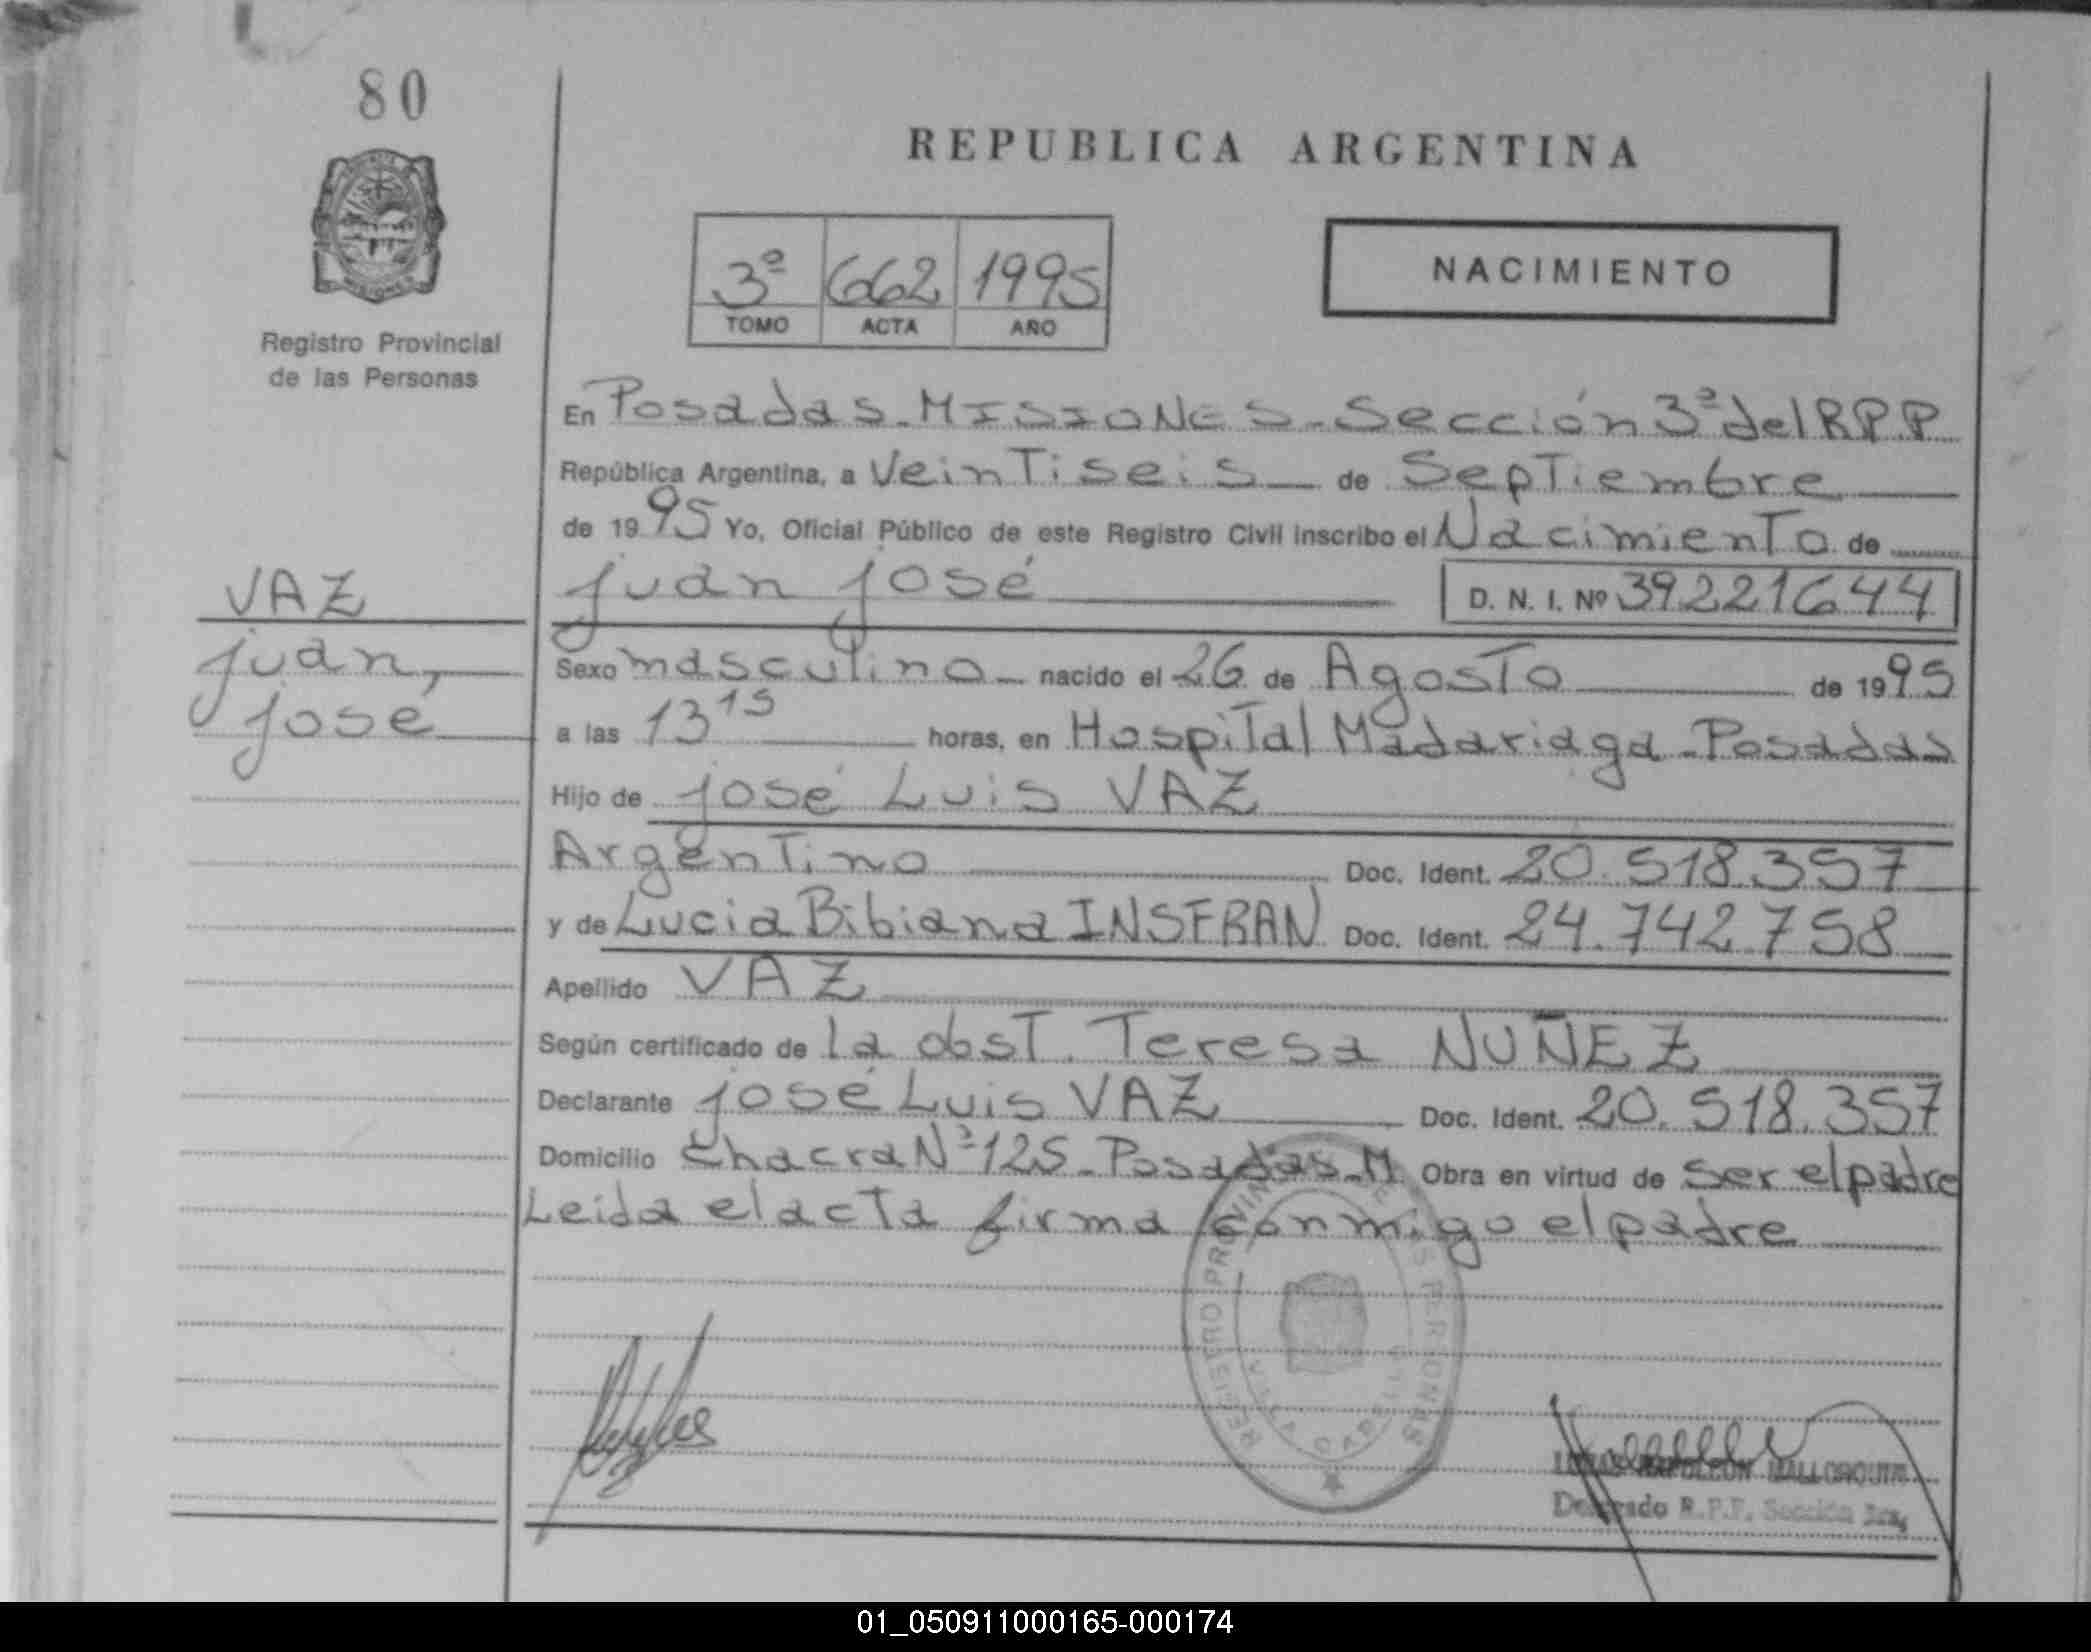 80
REPUBLICA ARGENTINA
3º 662 1995
TOMO ACTA AÑO
NACIMIENTO
Registro Provincial
de las Personas
En Posadas - MISIONES - Sección 3ª del R.P.P.
República Argentina, a veintiseis de Septiembre
de 1995 Yo, Oficial Público de este Registro Civil inscribo el Nacimiento de
VAZ
juan,
josé
juan josé D. N. I. Nº 39221644
Sexo masculino nacido el 26 de Agosto de 1995
a las 13 15 horas, en Hospital Madariaga - Posadas
Hijo de josé Luis VAZ
Argentino Doc. Ident. 20.518.357
y de Lucia Bibiana INSFRAN Doc. Ident. 24.742.758
Apellido VAZ
Según certificado de la obst. Teresa NUÑEZ
Declarante josé Luis VAZ Doc. Ident. 20.518.357
Domicilio Chacra Nº 125 - Posadas - M. Obra en virtud de ser el padre
Leida el acta firma conmigo el padre
REGISTRO PROVINCIAL DE LAS PERSONAS
VILLA CABELLO
NAPOLEON MALLORQUIN
Delegado R.P.P. Sección 3ra.
01_050911000165-000174